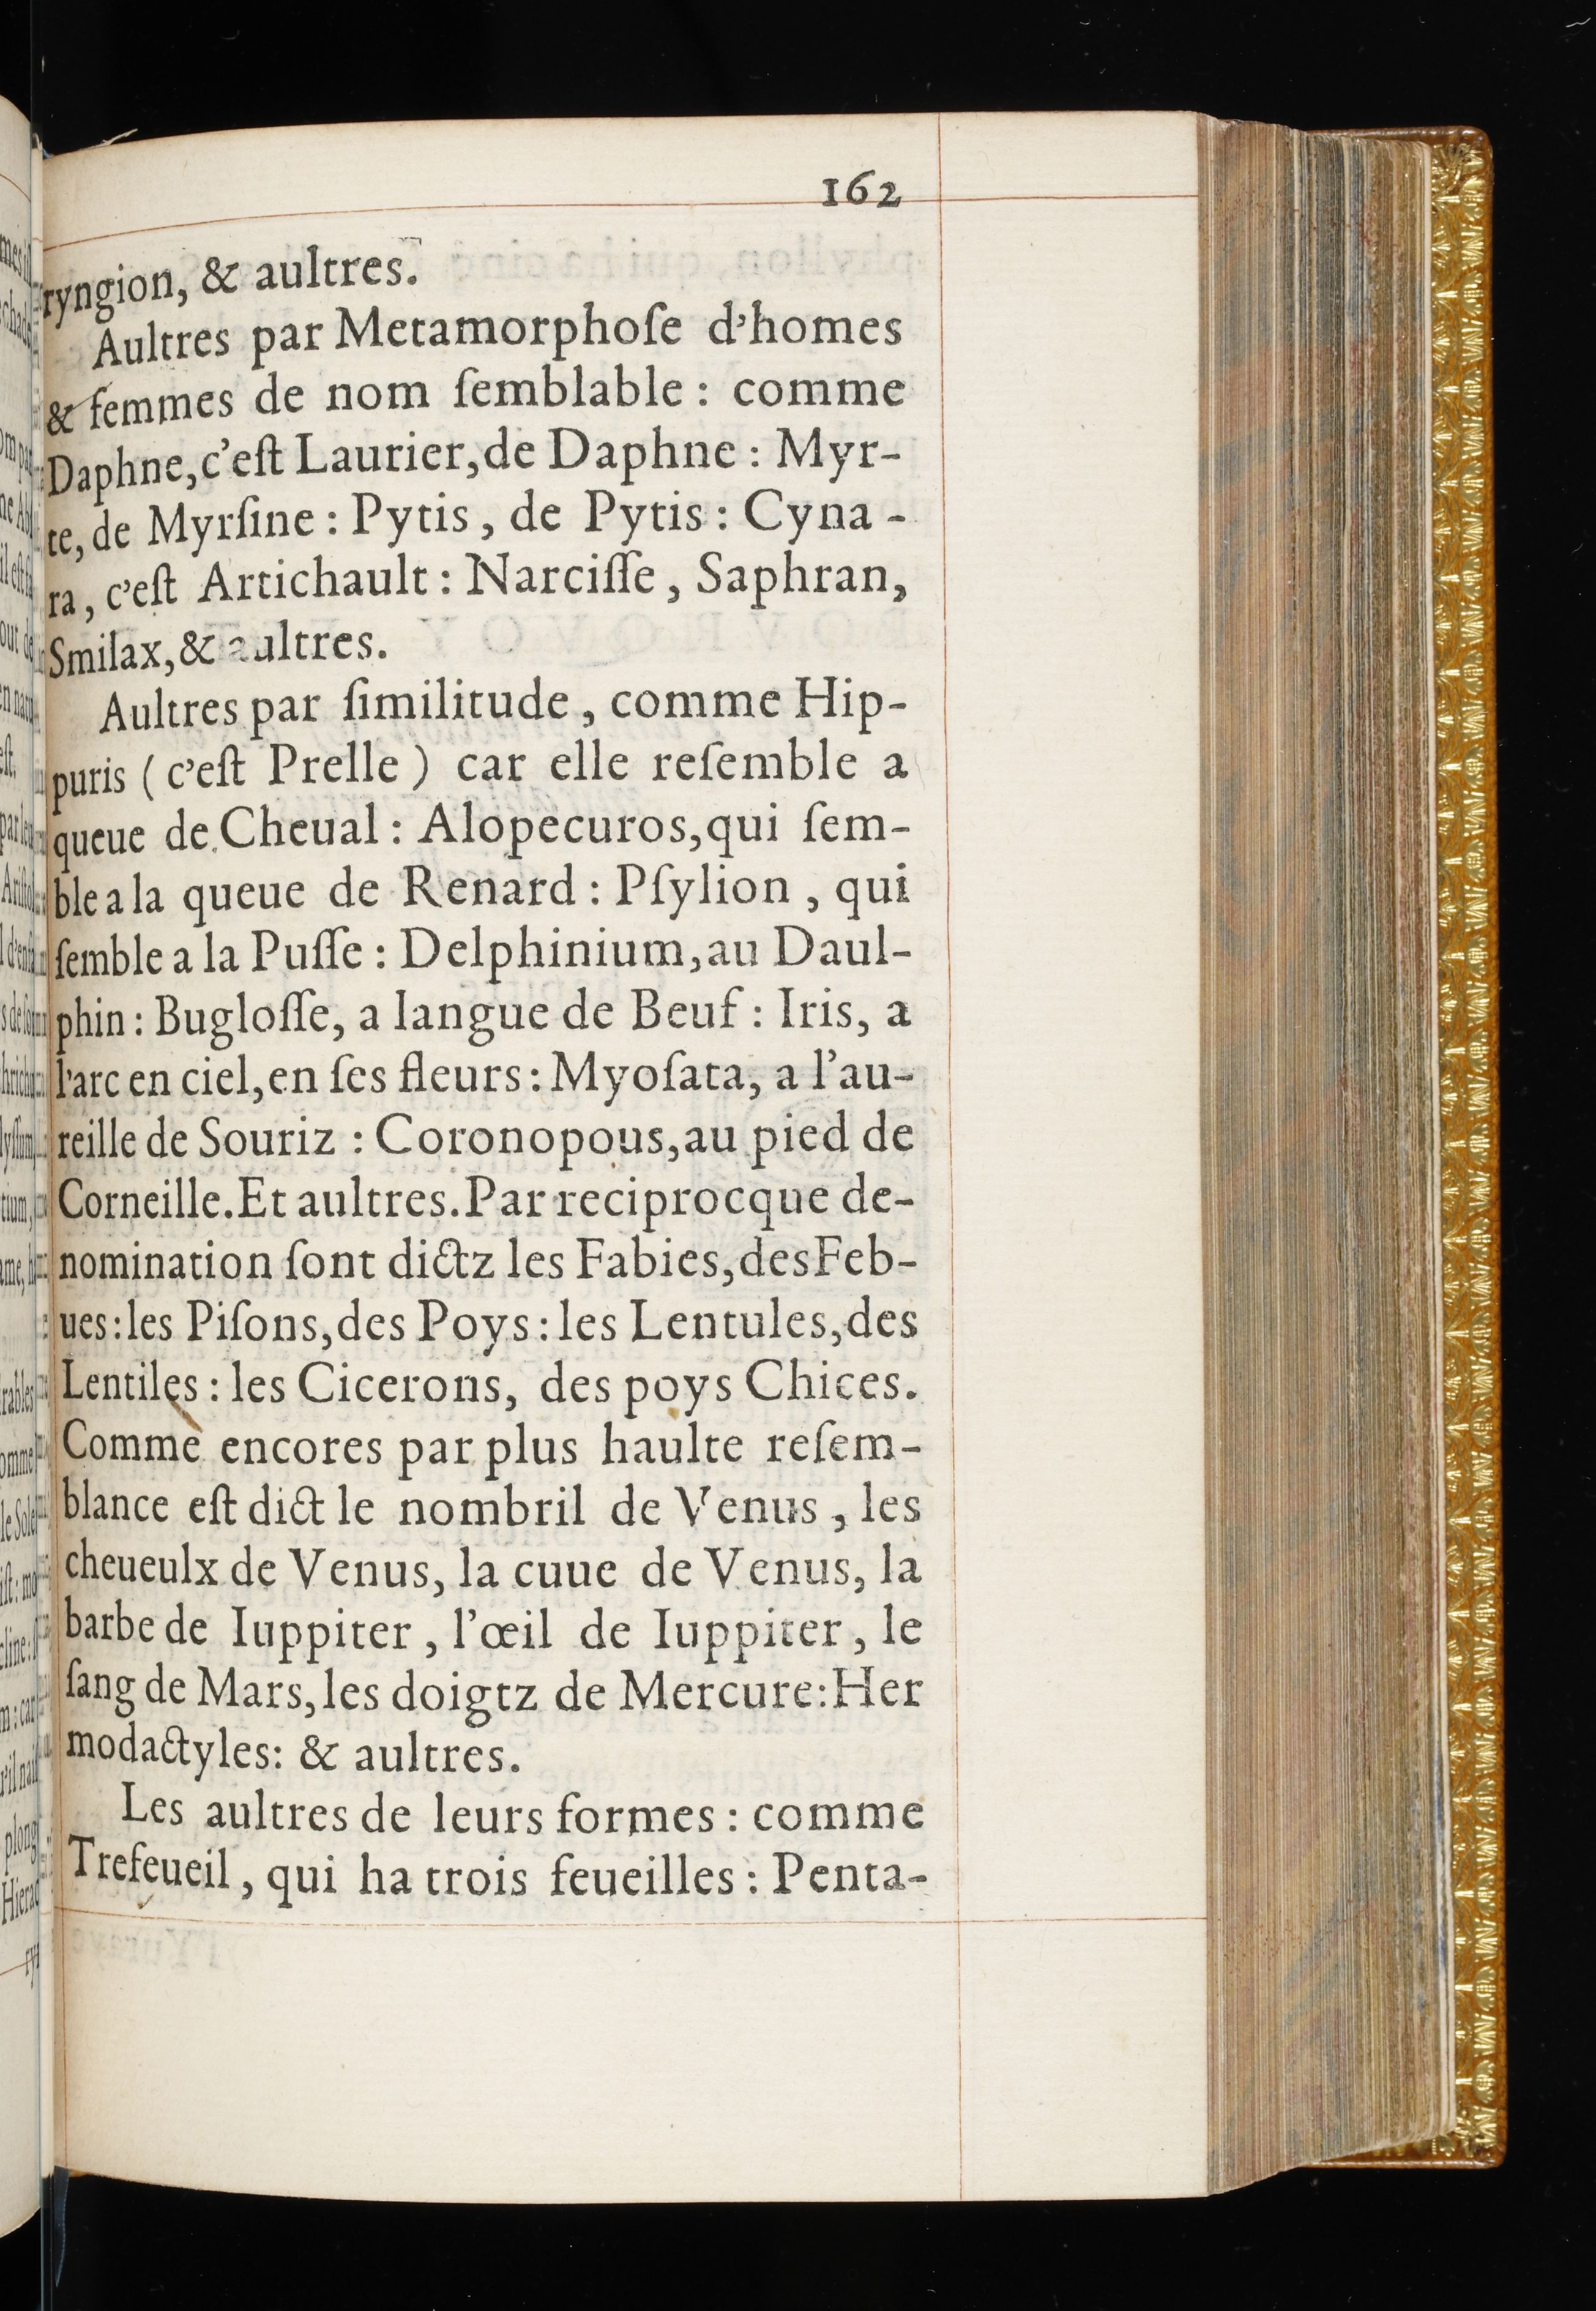 162
ryngion, & aultres.
Aultres par Metamorphoſe d'homes
& femmes de nom ſemblable : comme
Daphne, c'eſt Laurier, de Daphne : Myr-
te, de Myrſine : Pytis, de Pytis : Cyna-
ra, c'eſt Artichault : Narciſſe, Saphran,
Smilax, & aultres.
Aultres par ſimilitude, comme Hip-
puris (c'eſt Prelle) car elle reſemble a
queue de Cheual : Alopecuros, qui ſem-
ble a la queue de Renard : Pſylion, qui
ſemble a la Puſſe : Delphinium, au Daul-
phin : Bugloſſe, a langue de Beuf : Iris, a
l'arc en ciel, en ſes fleurs : Myoſata, a l'au-
reille de Souriz : Coronopous, au pied de
Corneille. Et aultres. Par reciprocque de-
nomination ſont dictz les Fabies, des Feb-
ues : les Piſons, des Poys : les Lentules, des
Lentiles : les Cicerons, des poys Chices.
Comme encores par plus haulte reſem-
blance eſt dict le nombril de Venus, les
cheueulx de Venus, la cuue de Venus, la
barbe de Iuppiter, l'œil de Iuppiter, le
ſang de Mars, les doigtz de Mercure: Her
modactyles: & aultres.
Les aultres de leurs formes : comme
Trefeueil, qui ha trois feueilles : Penta-